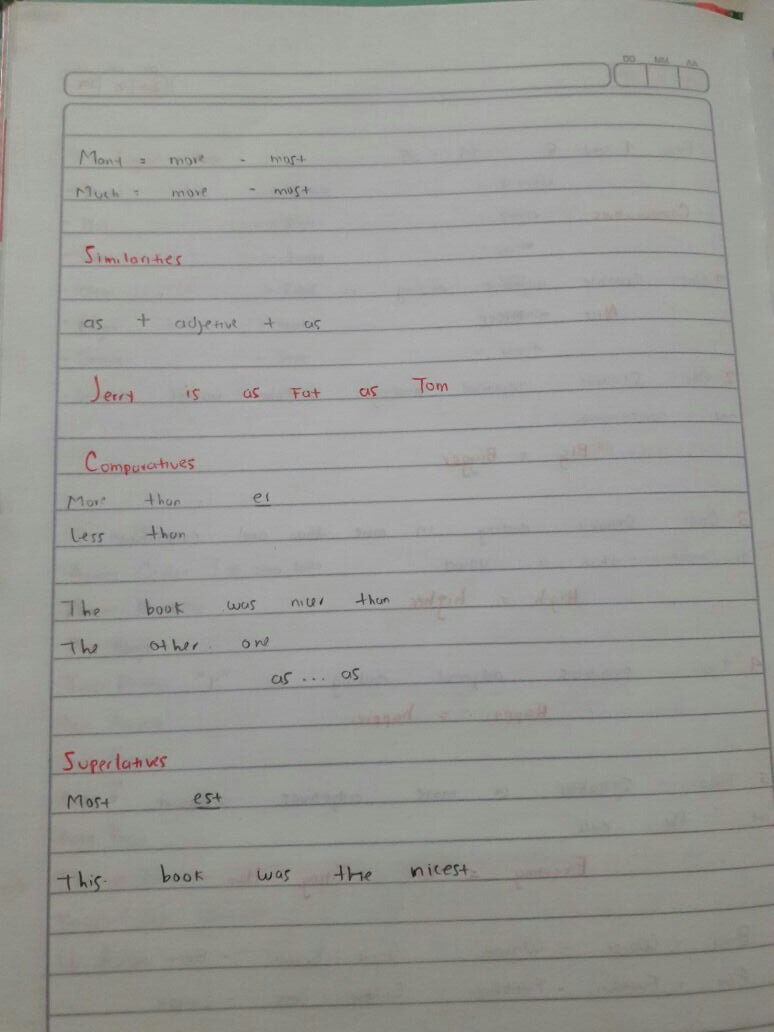 DD MM AA
Many = more - most
Much = more - most
Similarities
as + adjetive + as
Jerry is as Fat as Tom
Comparatives
More than er
Less than
The book was nicer than
The other. one
as ... as
Superlatives
Most est
This. book was the nicest.